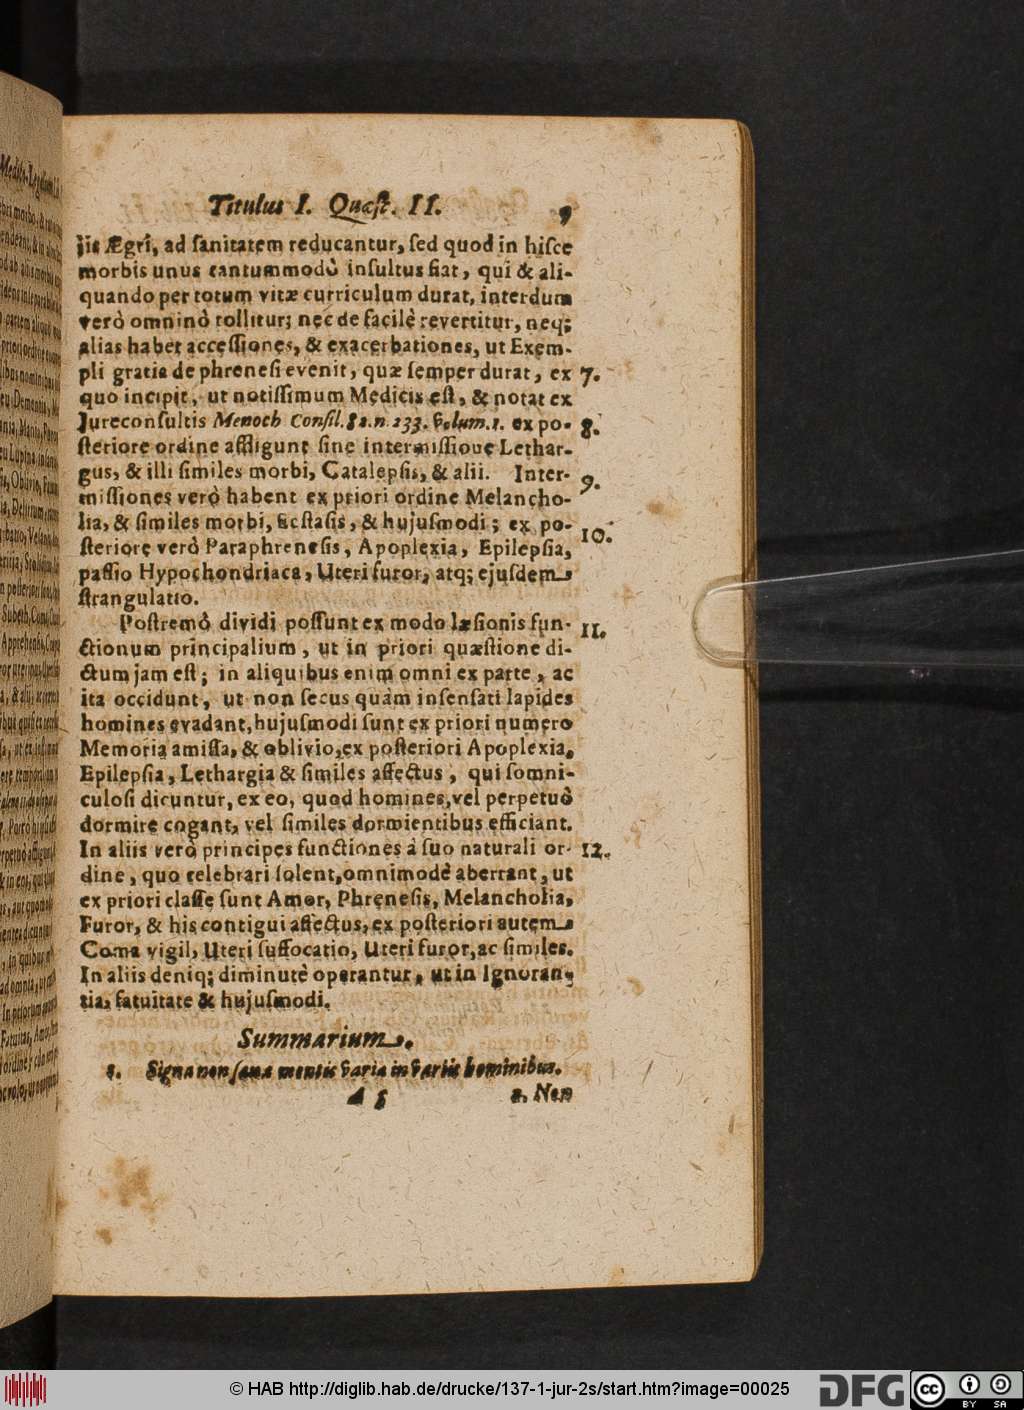 Titulus I. Quæst. II. 9
jis Ægri, ad ſanitatem reducantur, ſed quod in hiſce
morbis unus tantummodò inſultus fiat, qui & ali-
quando per totum vitæ curriculum durat, interdum
verò omninò tollitur; nec de facilè revertitur, neq;
alias habet acceſſiones, & exacerbationes, ut Exem-
pli gratia de phreneſi evenit, quæ ſemper durat, ex 7.
quo incipit, ut notiſſimum Medicis eſt, & notat ex
Jureconſultis Menoch Conſil. 82. n. 233. volum. 1. ex po- 8.
ſteriore ordine affligunt ſine intermiſſione Lethar-
gus, & illi ſimiles morbi, Catalepſis, & alii. Inter- 9.
miſſiones verò habent ex priori ordine Melancho-
lia, & ſimiles morbi, Ecſtaſis, & hujuſmodi; ex po- 10.
ſteriore verò Paraphreneſis, Apoplexia, Epilepſia,
paſſio Hypochondriaca, Uteri furor, atq; ejuſdem
ſtrangulatio.
Poſtremò dividi poſſunt ex modo læſionis fun- 11.
ctionum principalium, ut in priori quæſtione di-
ctum jam eſt; in aliquibus enim omni ex parte, ac
ita occidunt, ut non ſecus quàm inſenſati lapides
homines evadant, hujuſmodi ſunt ex priori numero
Memoria amiſſa, & oblivio, ex poſteriori Apoplexia,
Epilepſia, Lethargia & ſimiles affectus, qui ſomni-
culoſi dicuntur, ex eo, quod homines, vel perpetuò
dormire cogant, vel ſimiles dormientibus efficiant.
In aliis verò principes functiones à ſuo naturali or- 12.
dine, quo celebrari ſolent, omnimodè aberrant, ut
ex priori claſſe ſunt Amor, Phreneſis, Melancholia,
Furor, & his contigui affectus, ex poſteriori autem
Coma vigil, Uteri ſuffocatio, Uteri furor, ac ſimiles.
In aliis deniq; diminutè operantur, ut in Ignoran-
tia, fatuitate & hujuſmodi.
Summarium.
1. Signa non ſanæ mentis varia in variis hominibus.
A 5 2. Non
© HAB http://diglib.hab.de/drucke/137-1-jur-2s/start.htm?image=00025
DFG
CC BY SA